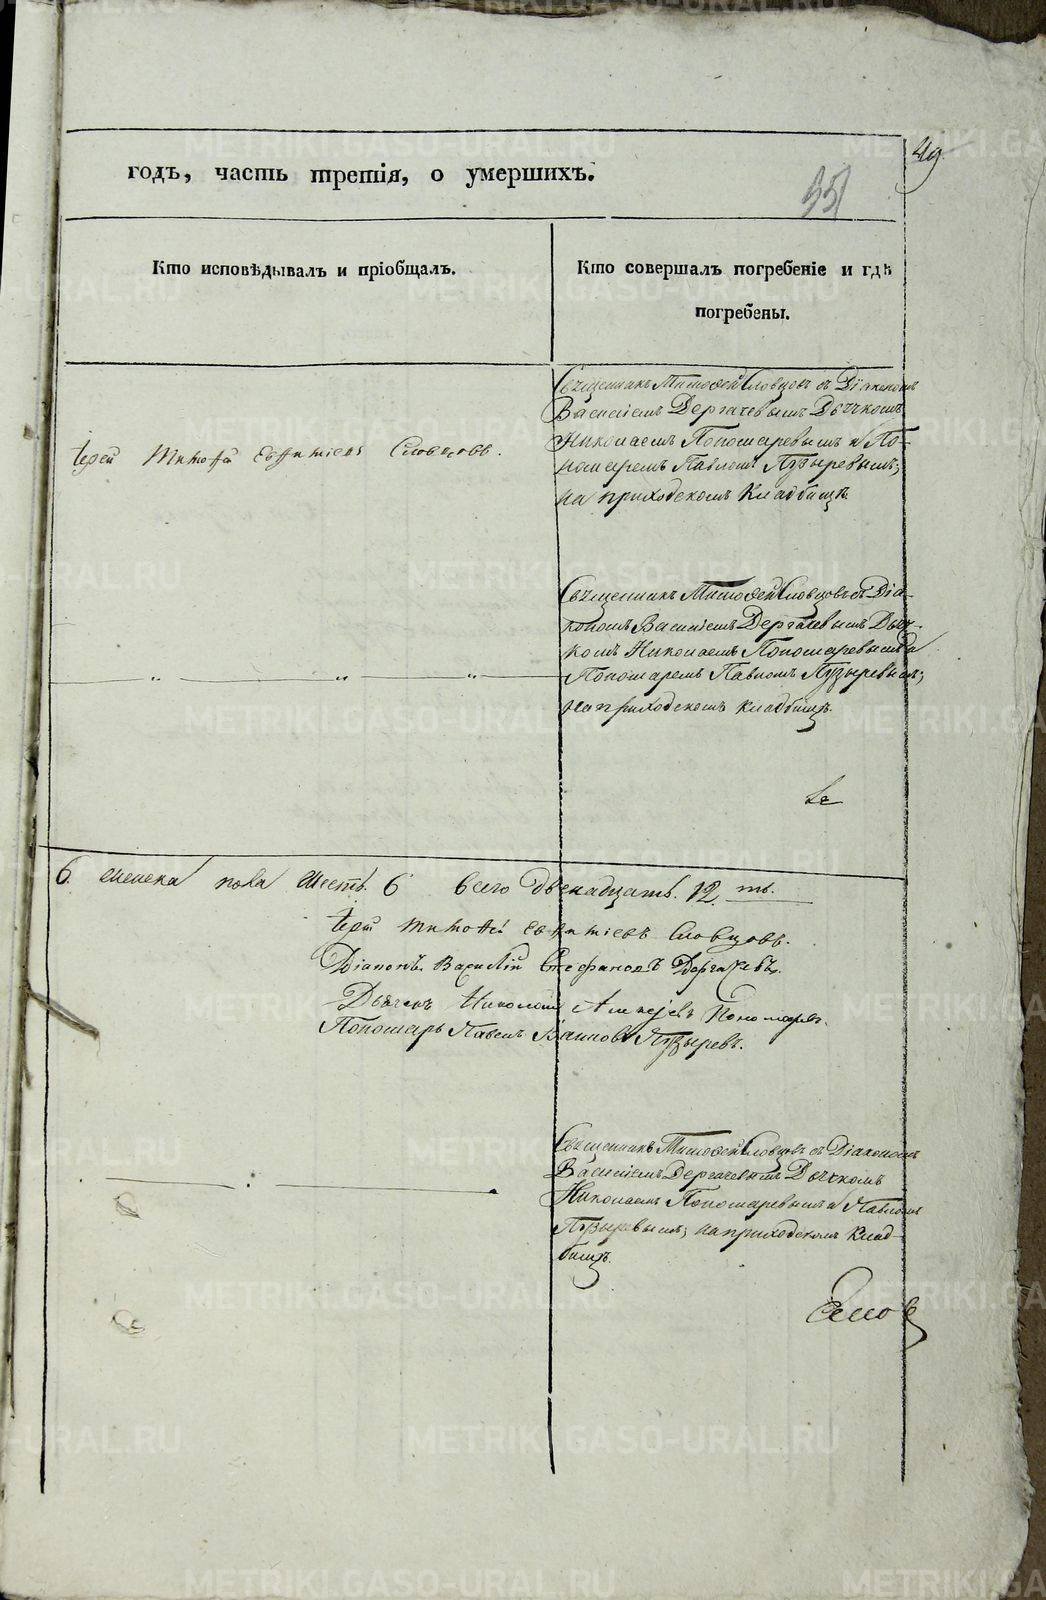 годъ, часть третія, о умершихъ.
49
35
Кто исповѣдывалъ и пріобщалъ.
Кто совершалъ погребеніе и гдѣ
погребены.
Священникъ Тимоѳей Словцовъ съ Діакономъ
Василіемъ Дергачевымъ Дьячкомъ
Николаемъ Пономаревымъ и По-
номаремъ Павломъ Пузыревымъ;
на приходскомъ Кладбищѣ.
Іерей Тимоѳей Евѳиміевъ Словцовъ.
Священникъ Тимоѳей Словцовъ съ Діа-
кономъ Василіемъ Дергачевымъ Дьяч-
комъ Николаемъ Пономаревымъ и
Пономаремъ Павломъ Пузыревымъ;
на приходскомъ кладбищѣ.
6. женска пола шесть. 6 всего двенадцать. 12. ть.
Іерей Тимоѳей Евѳиміевъ Словцовъ.
Діаконъ Василій Стефановъ Дергачевъ.
Дьячекъ Николай Алексѣевъ Пономаревъ.
Пономарь Павелъ Ивановъ Пузыревъ.
Священникъ Тимоѳей Словцовъ съ Діакономъ
Василіемъ Дергачевымъ Дьячкомъ
Николаемъ Пономаревымъ и Павломъ
Пузыревымъ; на приходскомъ Клад-
бищѣ.
METRIKI.GASO-URAL.RU